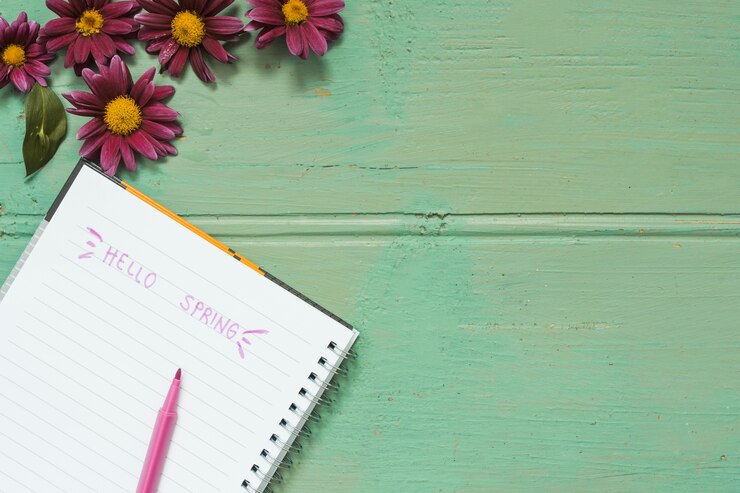 HELLO SPRING